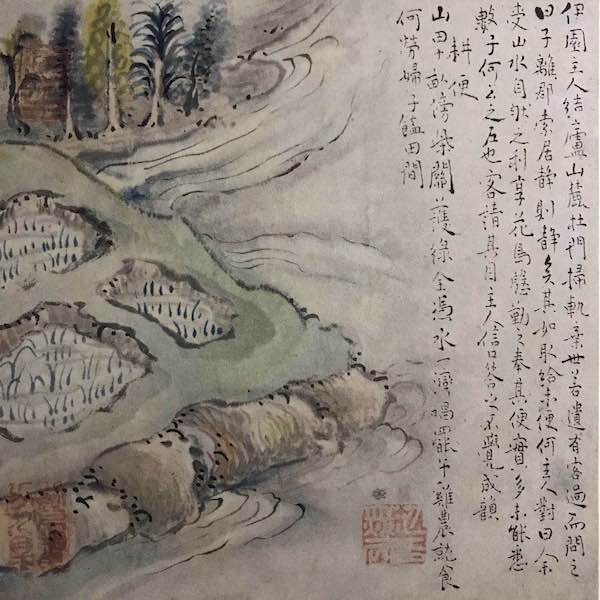 伊園主人結廬山麓杜門掃軌棄世若遺有客過而問之
曰子離群索居静則静矣其如取給未便何主人對曰余
受山水自然之利享花鳥慇勤之奉其便實多未能悉
數子何云之左也客請其目主人信口答之不覺成韻
耕便
山田十畝傍柴關護綠全憑水一灣唱罷午雞農就食
何勞婦子饁田間